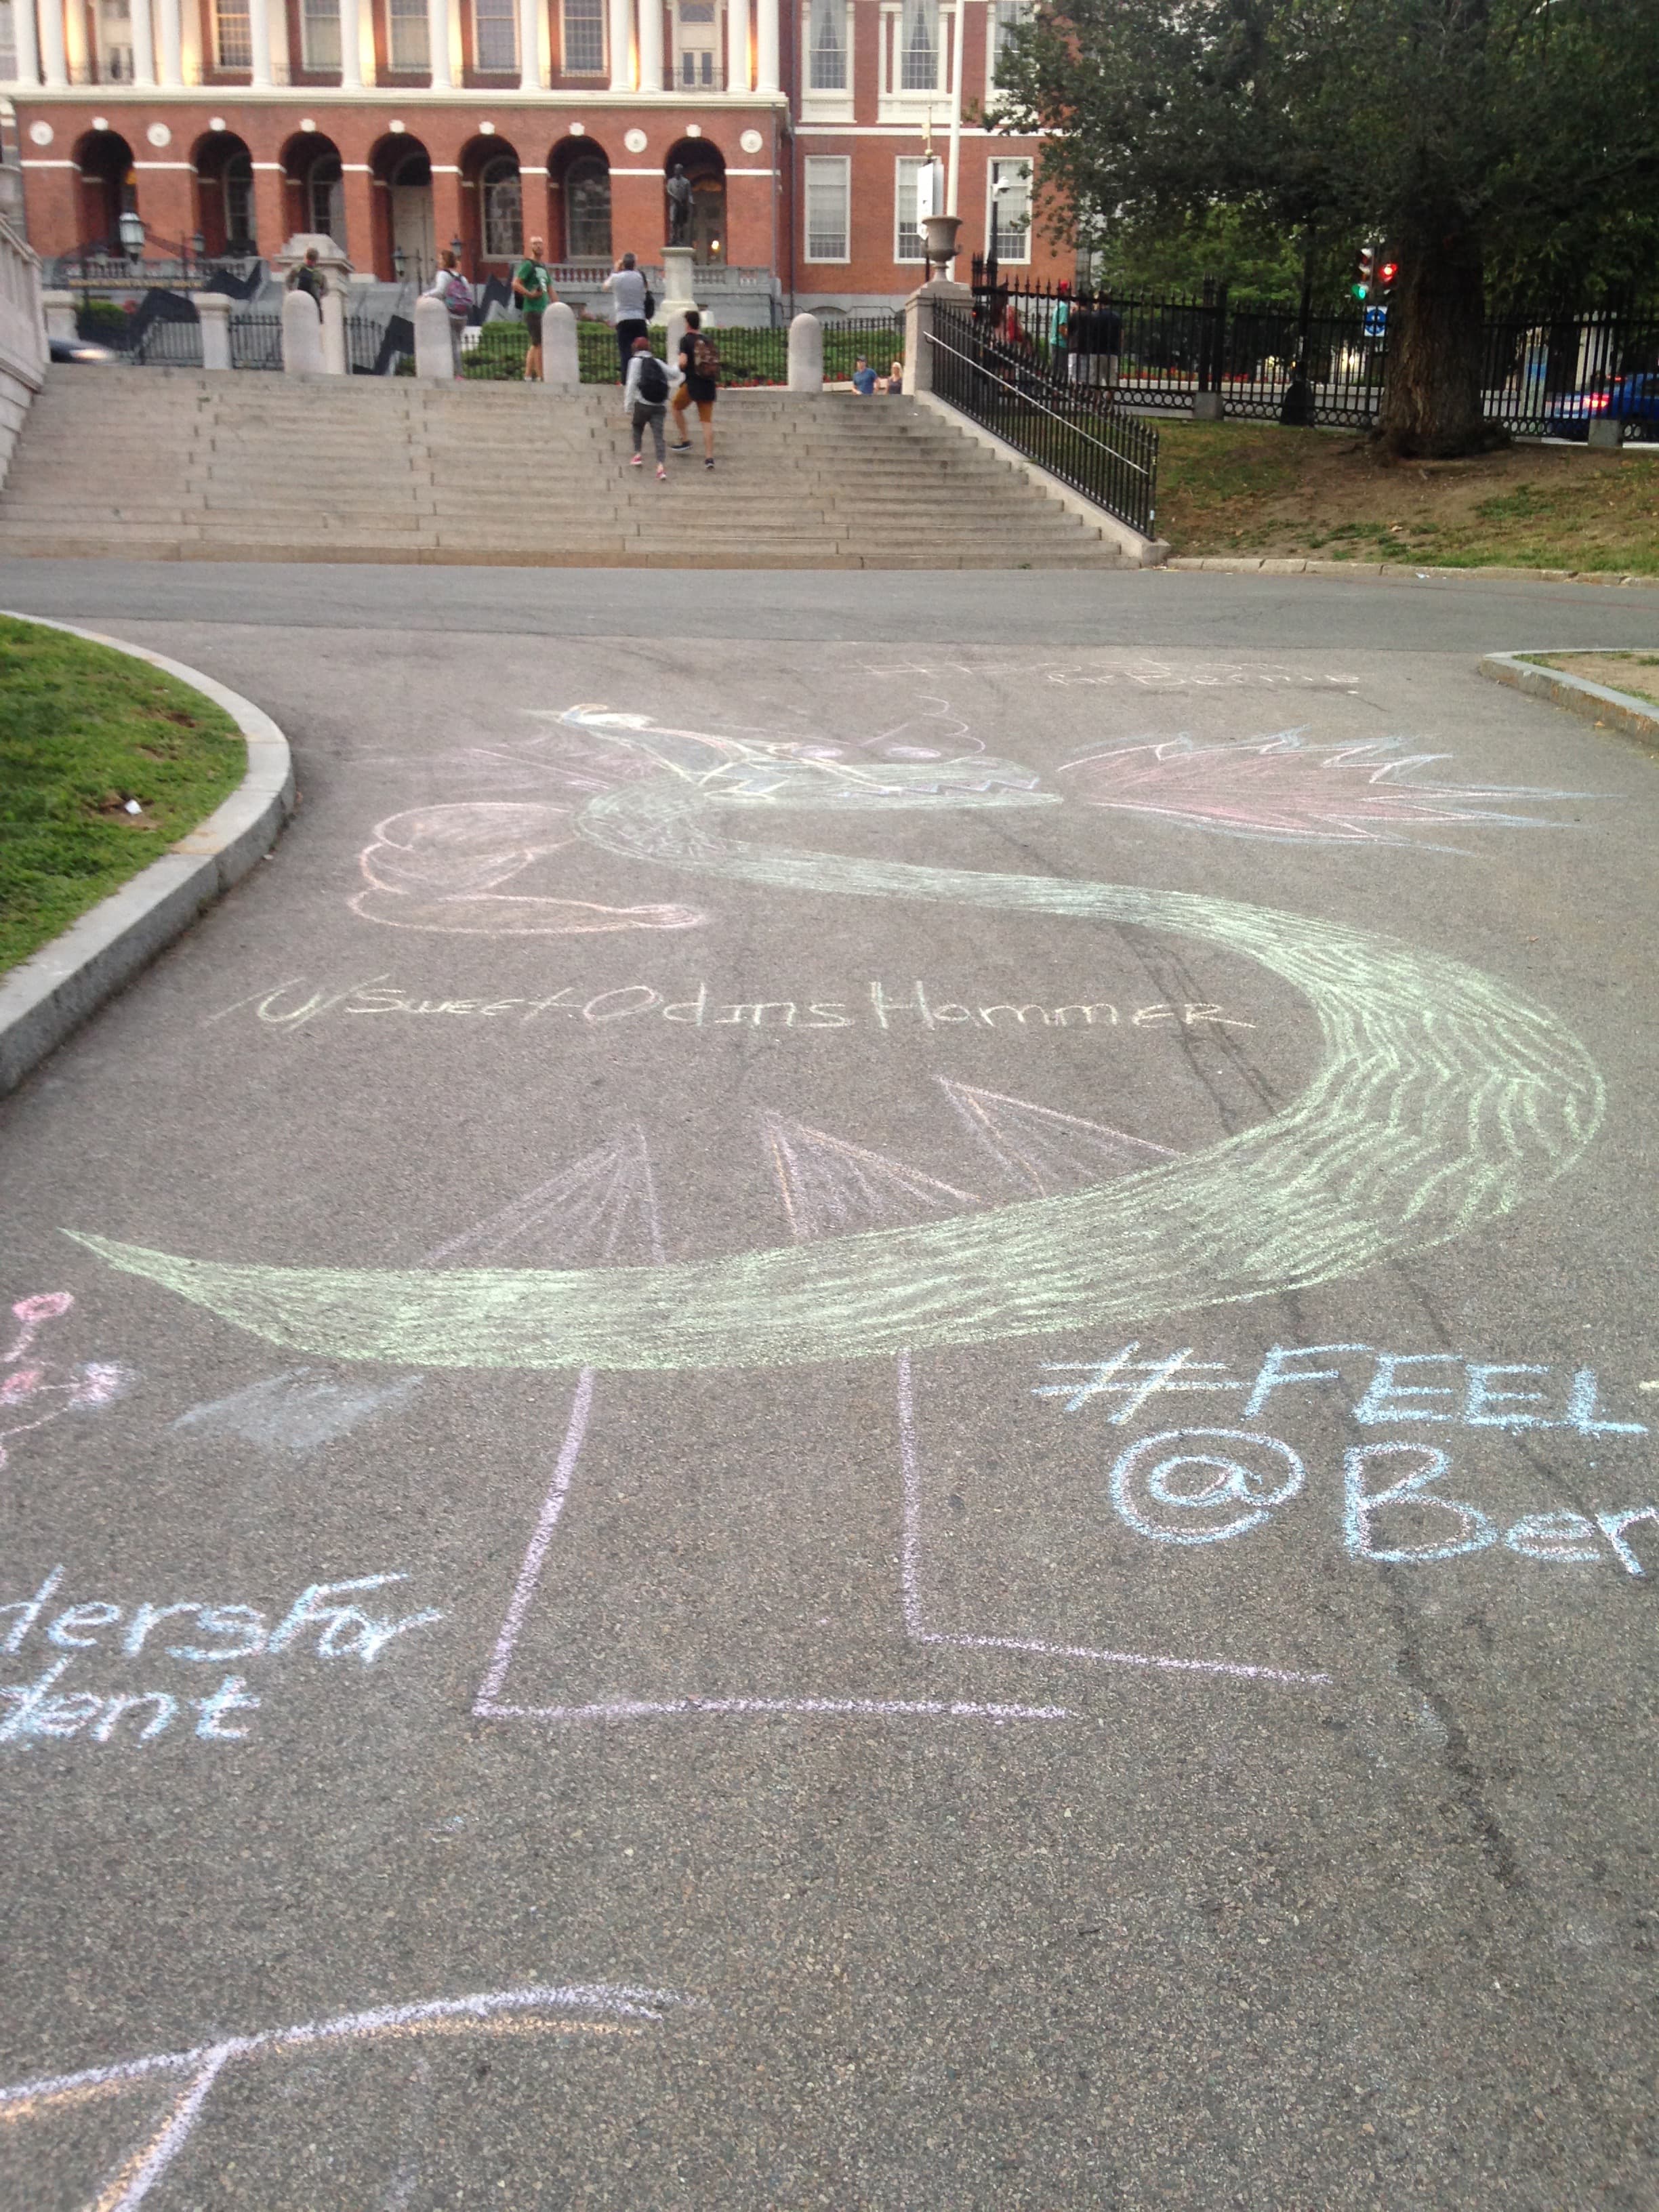 for Bernie
/U/SweetOdinsHammer
#FEEL
@Ber
dersFor
dent